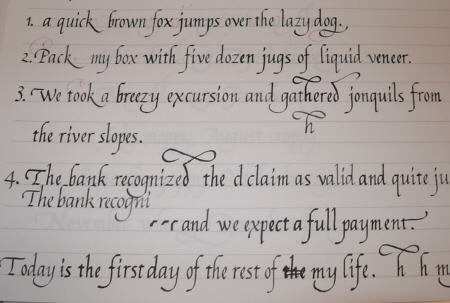 1. a quick brown fox jumps over the lazy dog.
2. Pack my box with five dozen jugs of liquid veneer.
3. We took a breezy excursion and gathered jonquils from
h
the river slopes.
4. The bank recognized the d claim as valid and quite ju
The bank recogni
and we expect a full payment.
Today is the first day of the rest of the my life. h h m